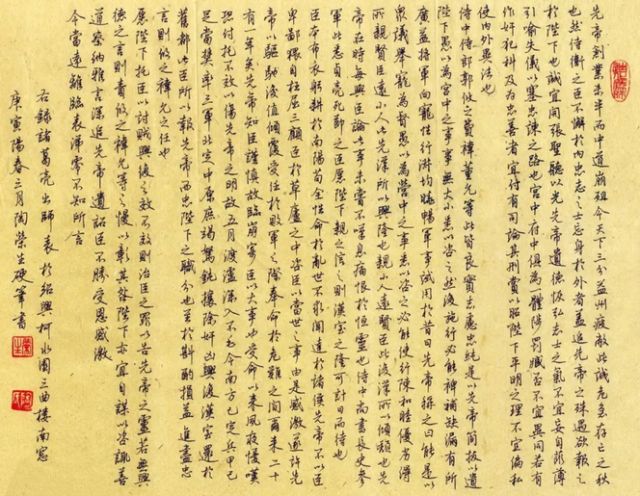 先帝創業未半而中道崩殂今天下三分益州疲敝此誠危急存亡之秋
也然侍衛之臣不懈於內忠志之士忘身於外者蓋追先帝之殊遇欲報之
於陛下也誠宜開張聖聽以光先帝遺德恢弘志士之氣不宜妄自菲薄
引喻失儀以塞忠諫之路也宮中府中俱為一體陟罰臧否不宜異同若有
作奸犯科及為忠善者宜付有司論其刑賞以昭陛下平明之理不宜偏私
使內外異法也
侍中侍郎郭攸之費禕董允等此皆良實志慮忠純是以先帝簡拔以遺
陛下愚以為宮中之事事無大小悉以咨之然後施行必能裨補缺漏有所
廣益將軍向寵性行淑均曉暢軍事試用於昔日先帝稱之曰能是以
衆議舉寵為督愚以為營中之事悉以咨之必能使行陳和睦優劣得
所親賢臣遠小人此先漢所以興隆也親小人遠賢臣此後漢所以傾頹也先
帝在時每與臣論此事未嘗不嘆息痛恨於恒靈也侍中尚書長史參
軍此悉貞亮死節之臣願陛下親之信之則漢室之隆可計日而待也
臣本布衣躬耕於南陽苟全性命於亂世不求聞達於諸侯先帝不以臣
卑鄙猥自枉屈三顧臣於草廬之中咨臣以當世之事由是感激遂許先
帝以驅馳後值傾覆受任於敗軍之際奉命於危難之間爾來二十
有一年矣先帝知臣謹慎故臨崩寄臣以大事也受命以來夙夜憂嘆
恐付托不效以傷先帝之明故五月渡瀘深入不毛今南方已定兵甲已
足當獎率三軍北定中原庶竭駑鈍攘除奸凶興復漢室還於
舊都此臣所以報先帝而忠陛下之職分也至於斟酌損益進盡忠
言則攸之禕允之任也
願陛下托臣以討賊興復之效不效則治臣之罪以告先帝之靈若無興
德之言則責攸之禕允等之慢以彰其咎陛下亦宜自謀以咨諏善
道察納雅言深追先帝遺詔臣不勝受恩感激
今當遠離臨表涕零不知所言
右錄諸葛亮出師表於紹興柯水園三曲樓南窗
庚寅陽春三月陶榮生硬筆書